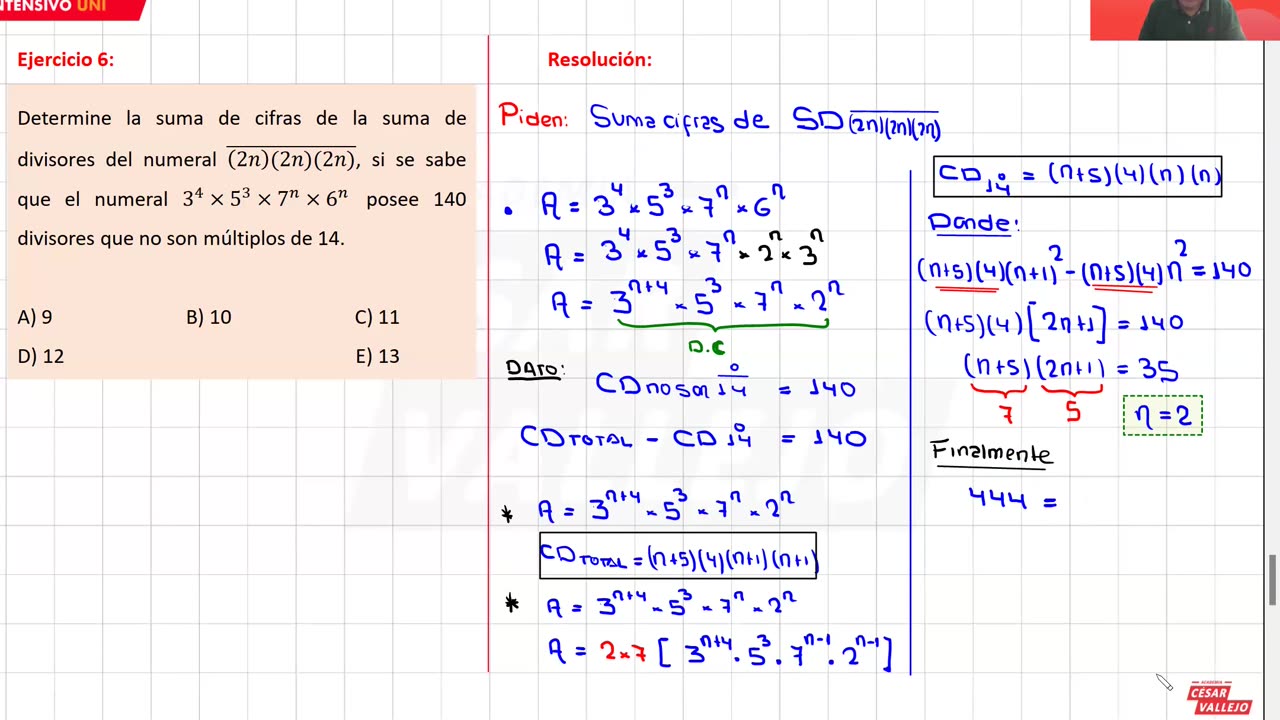 INTENSIVO UNI
Ejercicio 6:
Determine la suma de cifras de la suma de
divisores del numeral \overline{(2n)(2n)(2n)}, si se sabe
que el numeral 3⁴ × 5³ × 7ⁿ × 6ⁿ posee 140
divisores que no son múltiplos de 14.
A) 9 B) 10 C) 11
D) 12 E) 13
Resolución:
Piden: Suma cifras de SD \overline{(2n)(2n)(2n)}
• A = 3⁴ × 5³ × 7ⁿ × 6ⁿ
A = 3⁴ × 5³ × 7ⁿ × 2ⁿ × 3ⁿ
A = 3ⁿ⁺⁴ × 5³ × 7ⁿ × 2ⁿ
D.C
DATO:
CD no son \overline{14}° = 140
CD TOTAL - CD 14° = 140
* A = 3ⁿ⁺⁴ × 5³ × 7ⁿ × 2ⁿ
CD TOTAL = (n+5)(4)(n+1)(n+1)
* A = 3ⁿ⁺⁴ × 5³ × 7ⁿ × 2ⁿ
A = 2×7 [ 3ⁿ⁺⁴ · 5³ · 7ⁿ⁻¹ · 2ⁿ⁻¹ ]
CD 14° = (n+5)(4)(n)(n)
Donde:
(n+5)(4)(n+1)² - (n+5)(4)n² = 140
(n+5)(4)[2n+1] = 140
(n+5)(2n+1) = 35
7 5 n = 2
Finalmente
444 =
ACADEMIA
CÉSAR
VALLEJO